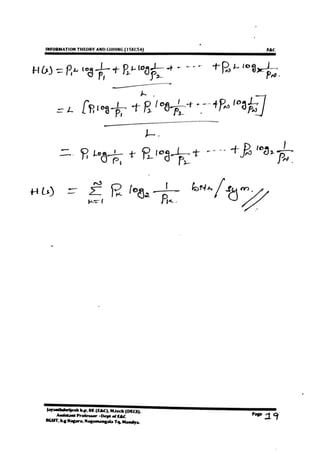 INFORMATION THEORY AND CODING (15EC54) E&C
H(s) = P₁L log 1/P₁ + P₂L log 1/P₂ + - - - - +P_N L log₂ 1/P_N.
L.
= L [P₁ log 1/P₁ + P₂ log 1/P₂ + - - - +P_N log 1/P_N]
L.
= P₁ log 1/P₁ + P₂ log 1/P₂ + - - - - +P_N log₂ 1/P_N.
H(s) = N Σ K=1 P_K log₂ 1/P_K. bits/sym. //
Assistant Professor -Dept of E&C Page 19
BGSIT, b.g Nagara, Nagamangala Tq, Mandya.